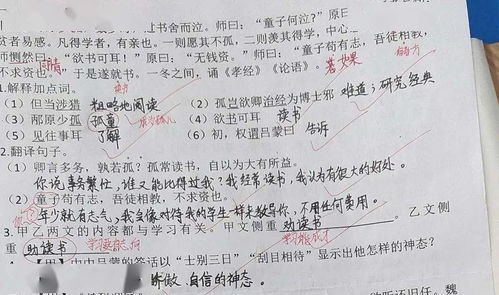 过书舍而泣。师曰："童子何泣？"原曰
贫者易感。凡得学者，有亲也。一则愿其不孤，二则羡其得学，中心
师恻然曰："欲书可耳！"原曰："无钱资。"师曰："童子苟有志，吾徒相教，
同情
若如果
不求资也。"于是遂就书。一冬之间，诵《孝经》《论语》。
1.解释加点词。
(1)但当涉猎 粗略地阅读 (2)孤岂欲卿治经为博士邪 难道；研究经典
(3)邴原少孤 孤童 (4)欲书可耳 读书
(5)见往事耳 了解 (6)初，权谓吕蒙曰 告诉
2.翻译句子。
(1)卿言多务，孰若孤？孤常读书，自以为大有所益。
你说事务繁忙，谁又能比得过我？我经常读书，我认为有很大的好处。
(2)童子苟有志，吾徒相教，不求资也。
年少就有志气，我会像对待我的学生一样来教导你，不用任何费用。
3.甲乙两文的内容都与学习有关。甲文侧重 劝读书 。乙文侧
重 劝读书
4.【甲】文中吕蒙的答话以"士别三日""刮目相待"显示出他怎样的神态？
骄傲、自信的神态。